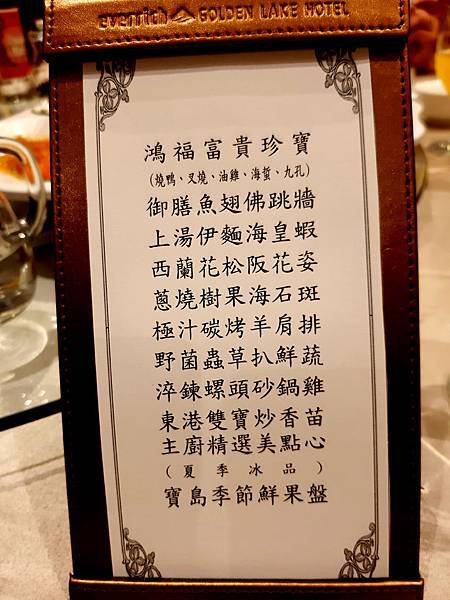 everrich GOLDEN LAKE HOTEL
鴻福富貴珍寶
(燒鴨、叉燒、油雞、海蜇、九孔)
御膳魚翅佛跳牆
上湯伊麵海皇蝦
西蘭花松阪花姿
蔥燒樹果海石斑
極汁碳烤羊肩排
野菌蟲草扒鮮蔬
淬鍊螺頭砂鍋雞
東港雙寶炒香苗
主廚精選美點心
(夏季冰品)
寶島季節鮮果盤